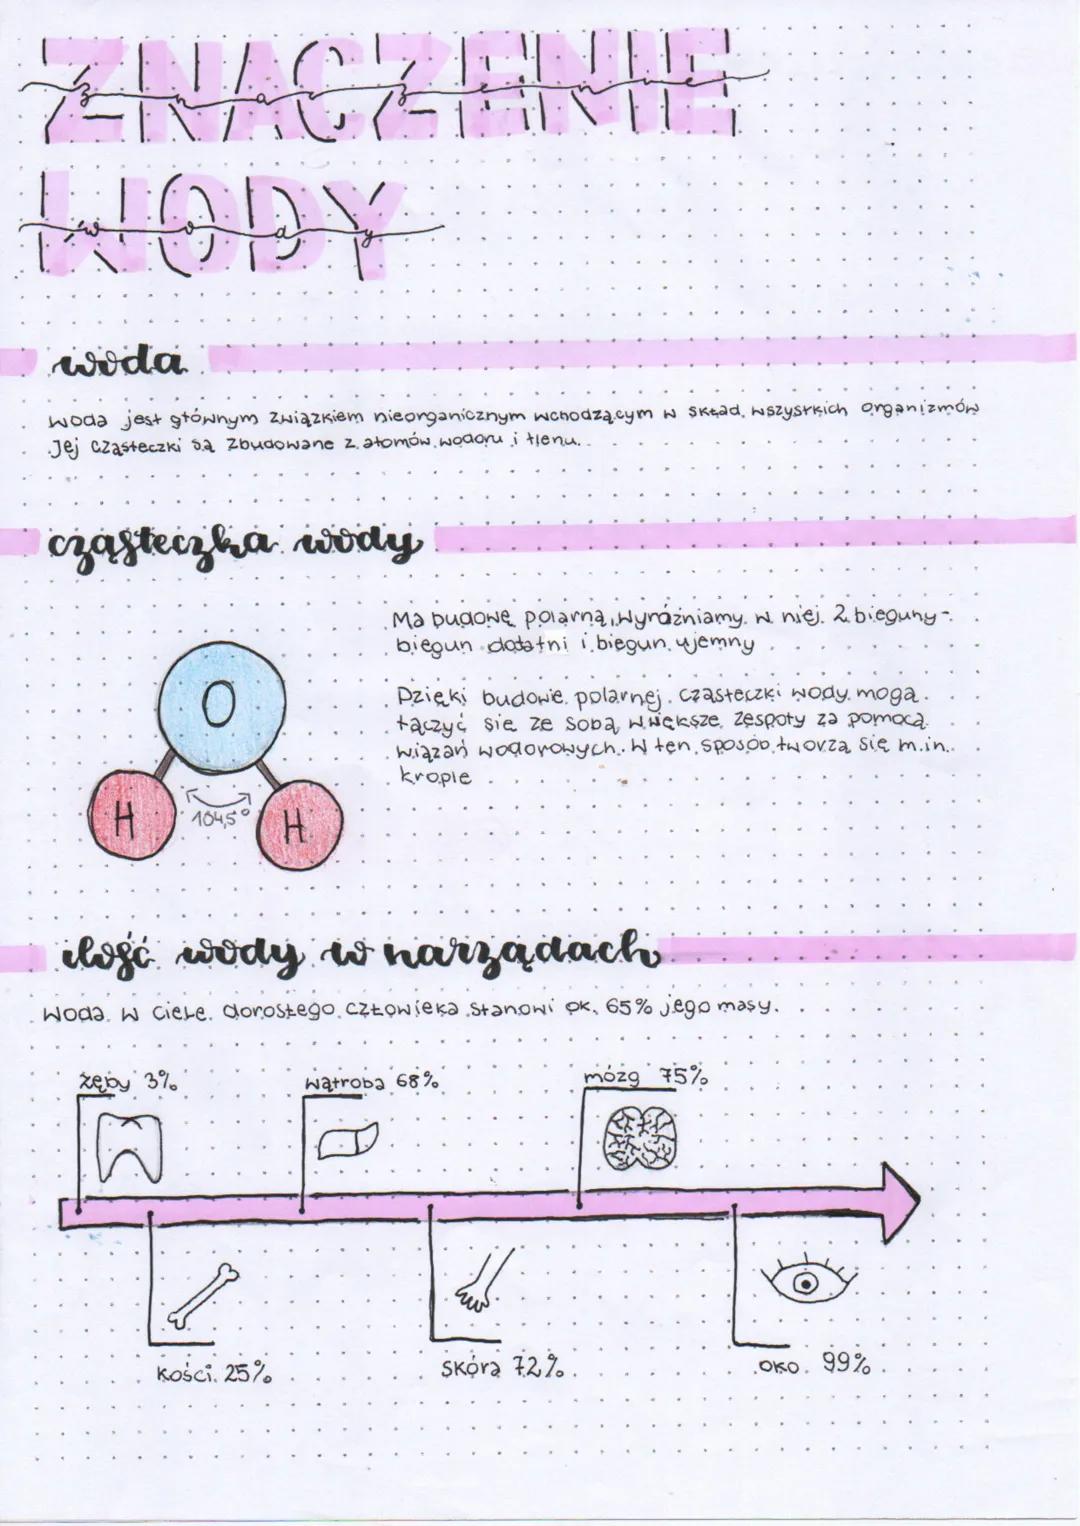 ZNACZENIE
znaczenie
WODY
wody
woda
Woda jest głównym związkiem nieorganicznym wchodzącym w skład wszystkich organizmów
Jej cząsteczki są zbudowane z atomów wodoru i tlenu.
cząsteczka wody
Ma budowę polarną, Wyróżniamy w niej 2 bieguny-
biegun dodatni i biegun ujemny
Dzięki budowie polarnej cząsteczki wody mogą
łączyć się ze sobą w większe zespoły za pomocą
wiązań wodorowych. W ten sposób tworzą się m.in.
krople
O
H
104,5°
H
ilość wody w narządach
Woda w ciele dorosłego człowieka stanowi ok. 65% jego masy.
zęby 3%
wątroba 68%
mózg 75%
kości 25%
skóra 72%
oko 99%